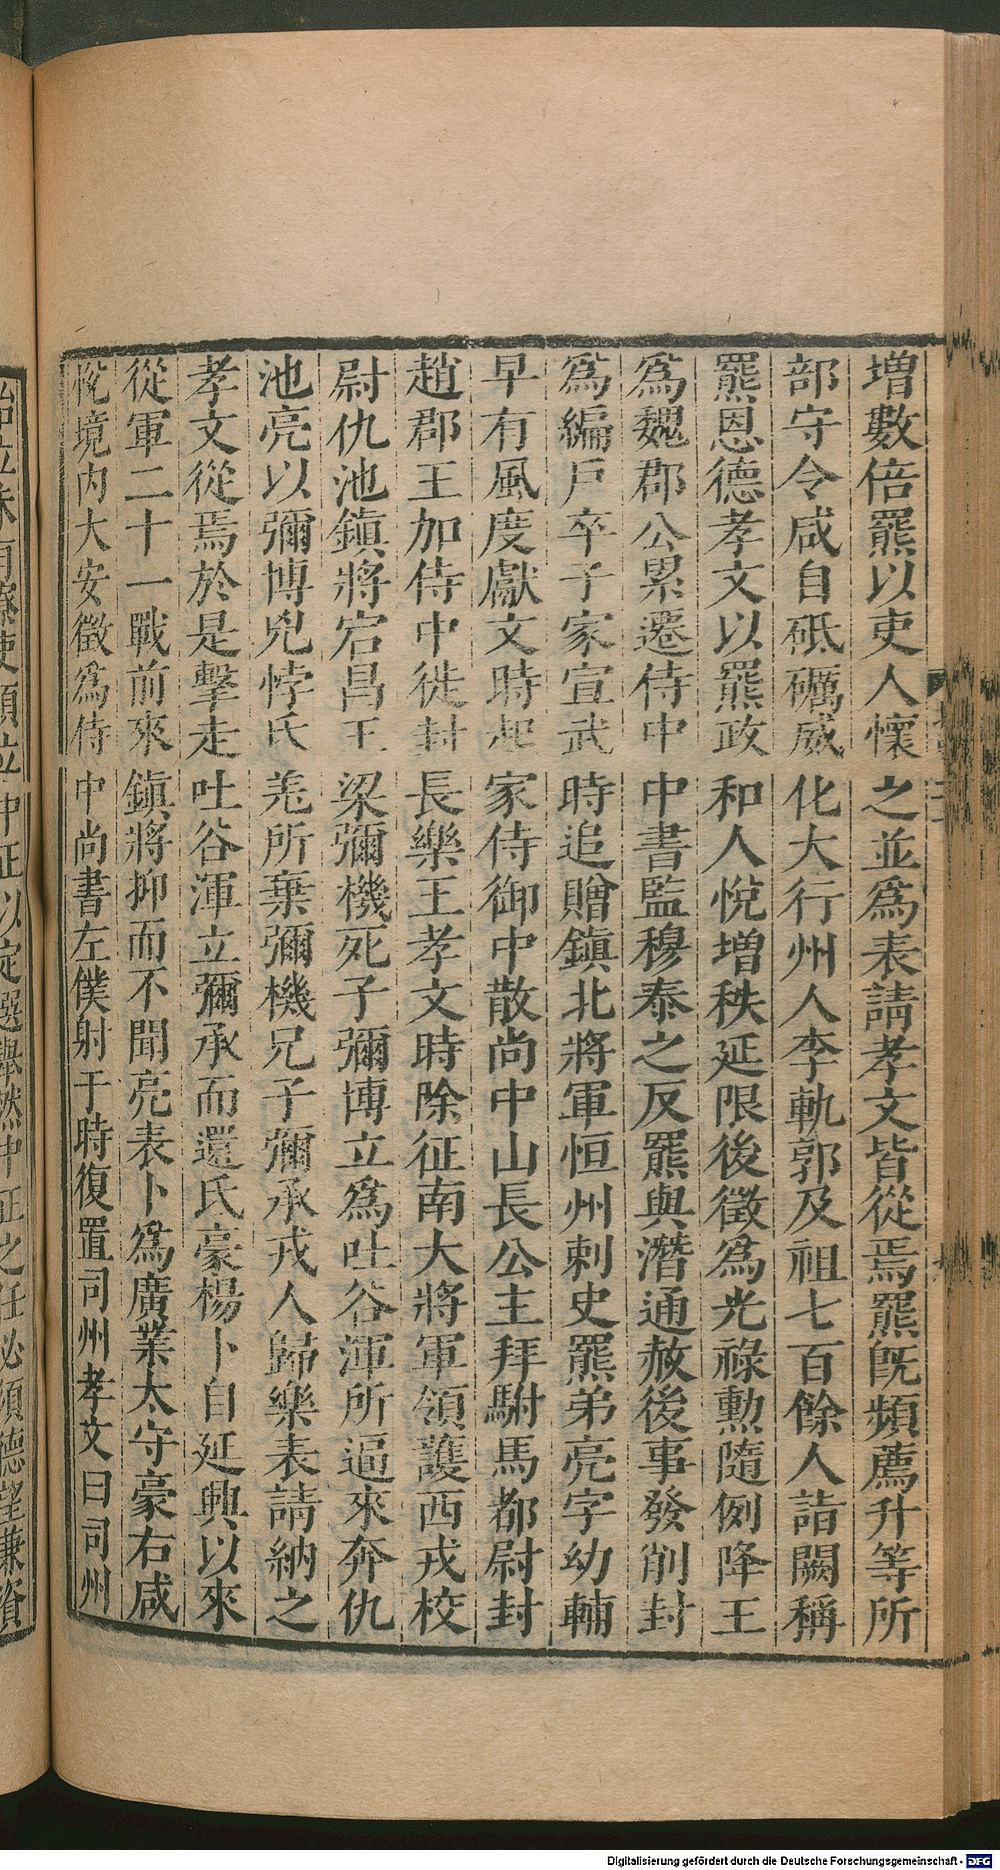 增數倍羆以吏人懷之並爲表請孝文皆從焉羆旣頻薦升等所
部守令咸自砥礪威化大行州人李軌郭及祖七百餘人詣闕稱
羆恩德孝文以羆政和人悅增秩延限後徵爲光祿勳隨例降王
爲魏郡公累遷侍中中書監穆泰之反羆與潛通赦後事發削封
爲編戶卒于家宣武時追贈鎭北將軍恒州刺史羆弟亮字幼輔
早有風度獻文時起家侍御中散尚中山長公主拜駙馬都尉封
趙郡王加侍中徙封長樂王孝文時除征南大將軍領護西戎校
尉仇池鎭將宕昌王梁彌機死子彌博立爲吐谷渾所逼來奔仇
池亮以彌博兇悖氐羌所棄彌機兄子彌承戎人歸樂表請納之
孝文從焉於是擊走吐谷渾立彌承而還氐豪楊卜自延興以來
從軍二十一戰前來鎭將抑而不聞亮表卜爲廣業太守豪右咸
悅境內大安徵爲侍中尚書左僕射于時復置司州孝文曰司州
中正以定選舉然中正之任必須德望兼資
Digitalisierung gefördert durch die Deutsche Forschungsgemeinschaft - DFG